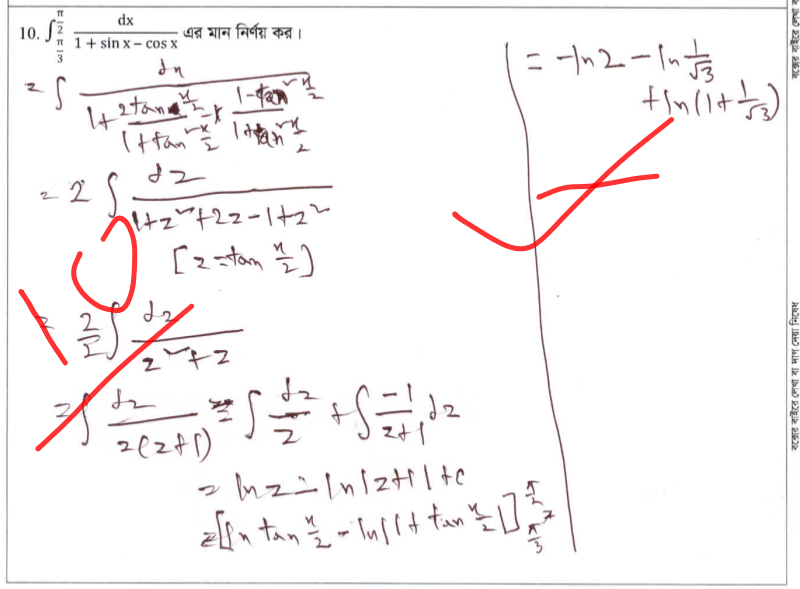 10. ∫_{π/3}^{π/2} dx / (1 + sin x – cos x) এর মান নির্ণয় কর।
= ∫ dx / (1 + (2tan x/2)/(1+tan² x/2) - (1-tan² x/2)/(1+tan² x/2))
= 2 ∫ dz / (1+z²+2z-1+z²)
[z=tan x/2]
= 2/2 ∫ dz / (z²+z)
= ∫ dz / (z(z+1)) = ∫ dz/z + ∫ -1/(z+1) dz
= ln z - ln|z+1| + c
= [ln tan x/2 - ln|1+tan x/2|]_{π/3}^{π/2}
= -ln 2 - ln 1/√3
+ ln(1+1/√3)
10
বক্সের বাইরে লেখা বা দাগ দেয়া নিষেধ